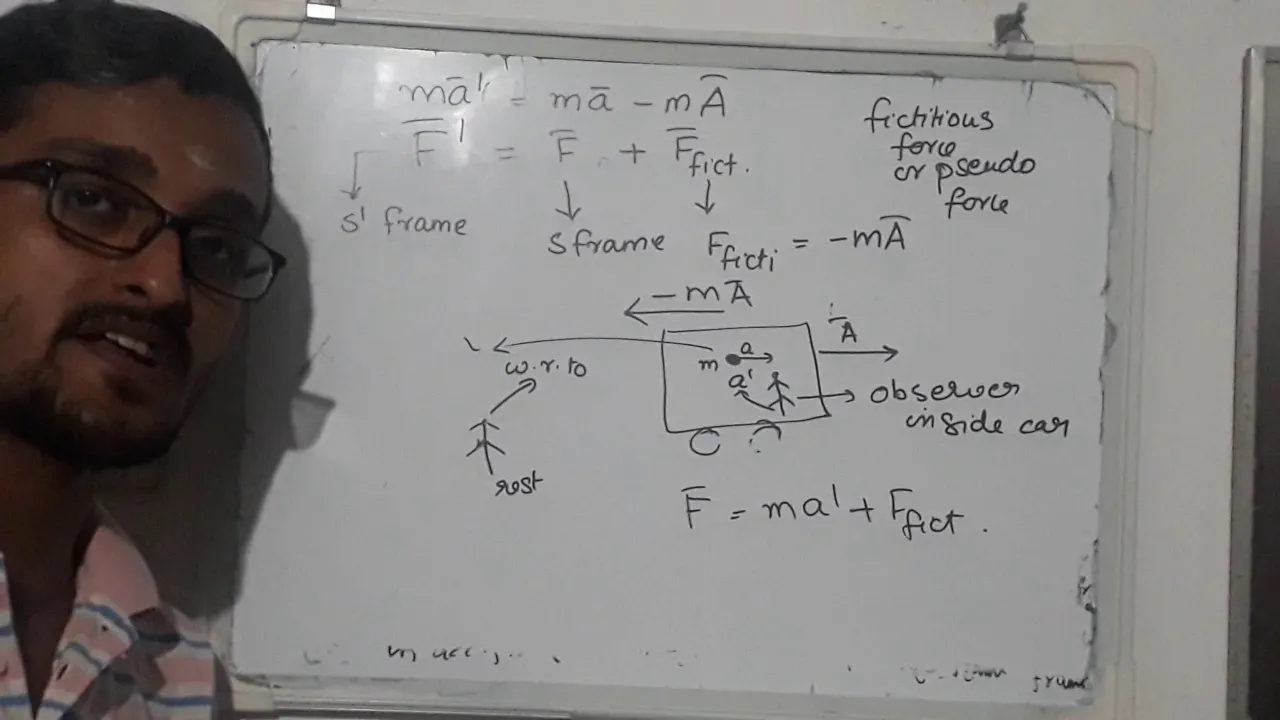 mā' = mā - mĀ
F̄' = F̄ + F̄fict.
fictitious
force
or pseudo
force
s' frame
s frame
Fficti = -mĀ
-mĀ
Ā
w.r.to
m a
a'
observer
inside car
rest
F̄ = ma' + Ffict.